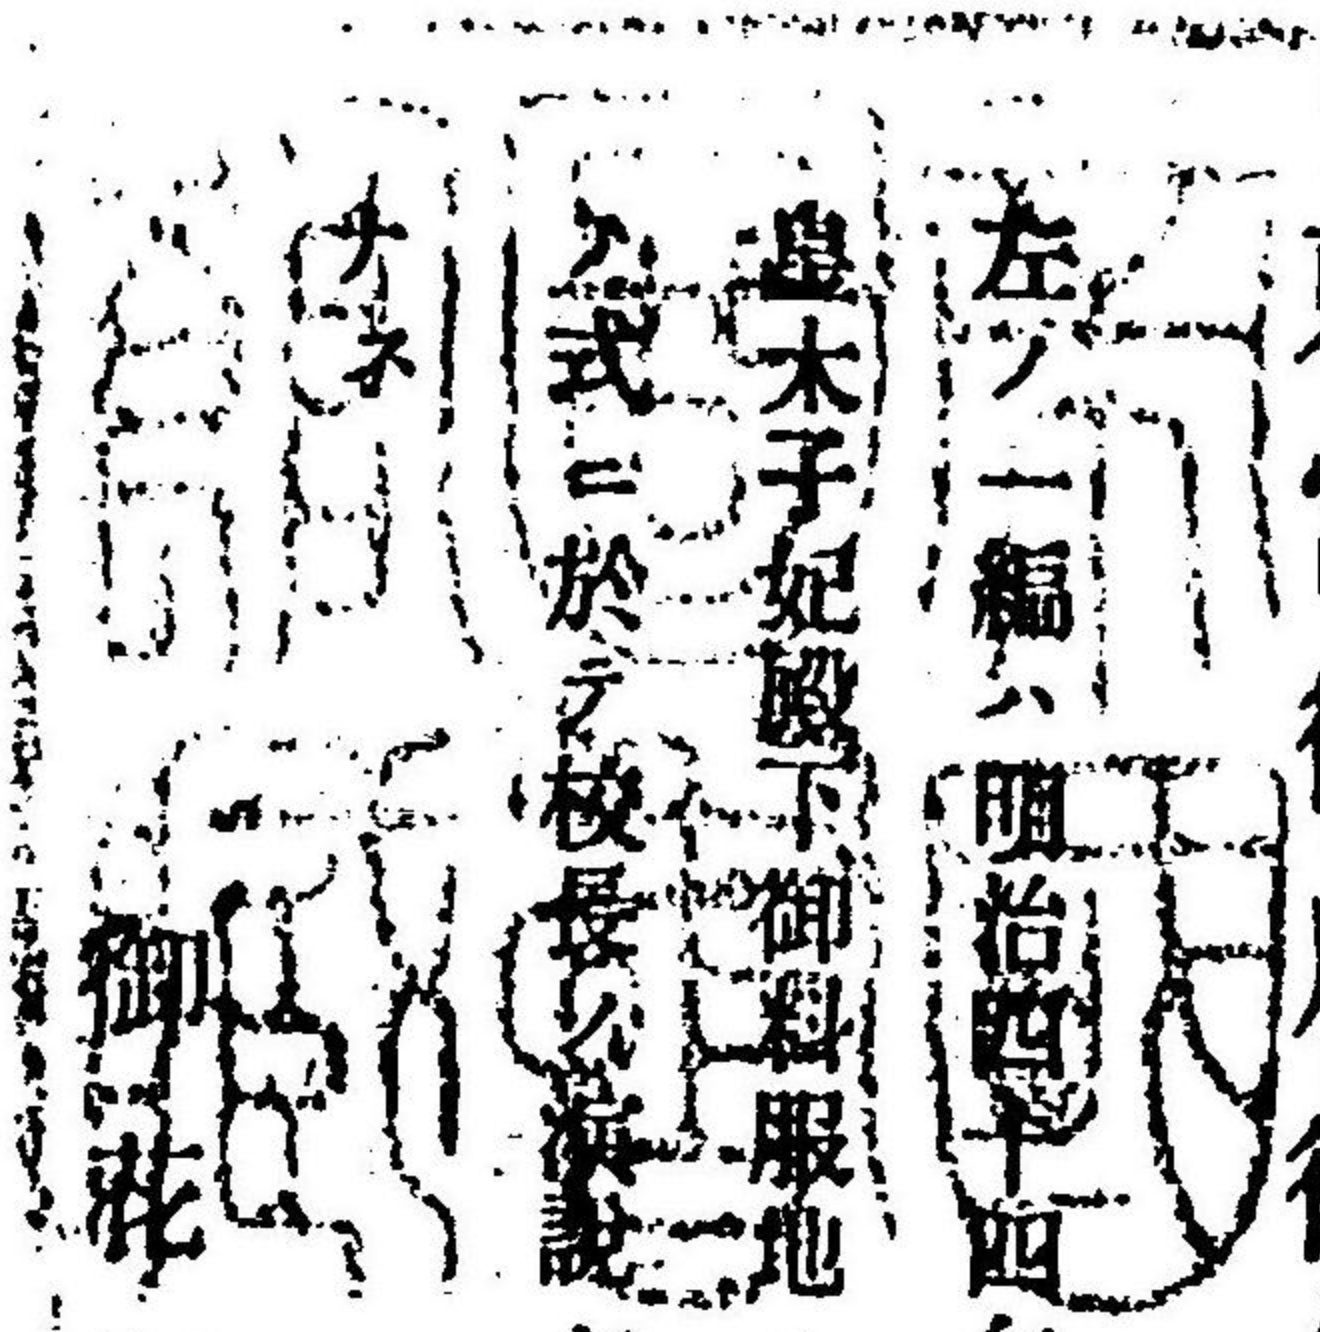 左ノ一編ハ明治四十四
皇木子妃殿下御料服地
ケ式ニ於テ校長ノ演説
サネ
御花